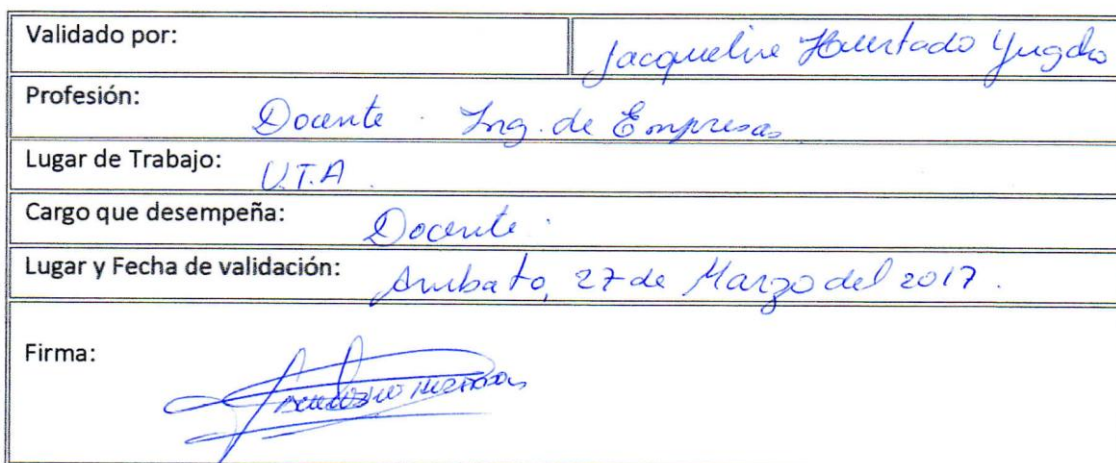 Validado por: Jacqueline Hurtado Yugcha
Profesión: Docente . Ing. de Empresas
Lugar de Trabajo: U.T.A.
Cargo que desempeña: Docente.
Lugar y Fecha de validación: Ambato, 27 de Marzo del 2017.
Firma: